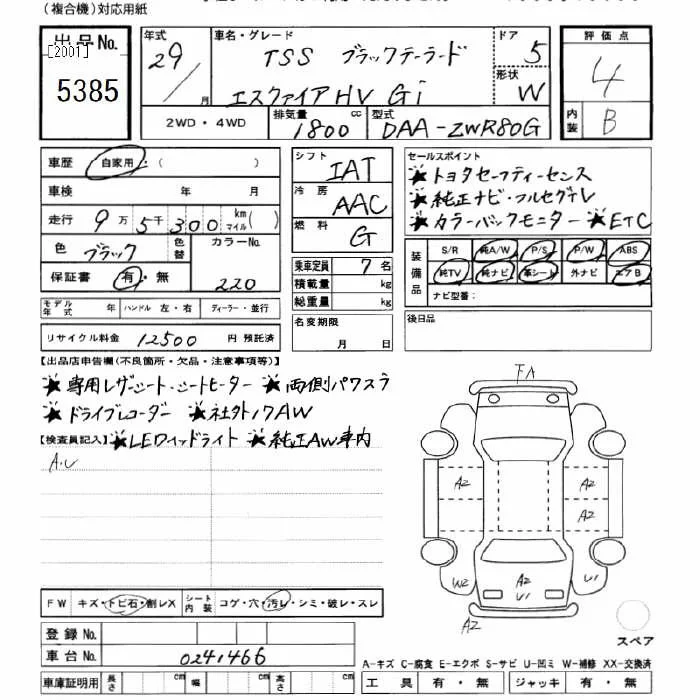 (複合機)対応用紙
出品No. [2001] 5385
年式 29/月
車名・グレード TSS ブラックテーラード
エスクァイア HV Gi
ドア 5
形状 W
2WD・4WD 排気量 1800 cc 型式 DAA-ZWR80G
評価点 4
内装 B
車歴 自家用・( )
車検 年 月
走行 9万5千300 km マイル( )
色 ブラック 色替 カラーNo. 220
保証書 有・無
モデル年式 年 ハンドル 左・右 ディーラー・並行
リサイクル料金 12500 円 預託済
シフト IAT
冷房 AAC
燃料 G
乗車定員 7名
積載量 kg
総重量 kg
名変期限 月 日
セールスポイント
★トヨタセーフティーセンス
★純正ナビ・フルセグTV
★カラーバックモニター ★ETC
装備品 S/R 純A/W P/S P/W ABS
純TV 純ナビ 革シート 外ナビ エアB
ナビ型番:
後日品
【出品店申告欄(不良箇所・欠品・注意事項等)】
★専用レザーシート・シートヒーター ★両側パワスラ
★ドライブレコーダー ★社外17AW
【検査員記入】 ★LEDヘッドライト ★純正AW車内
A・U
FA
A2 A2
A2
W2 A2 U1 U1
A2
スペア
FW キズ・トビ石・割レX シート内装 コゲ・穴・汚レ・シミ・破レ・スレ
登録No.
車台No. 0241466
車庫証明用 長さ cm 幅 cm 高さ cm
A-キズ C-腐食 E-エクボ S-サビ U-凹ミ W-補修 XX-交換済
工具 有・無 ジャッキ 有・無